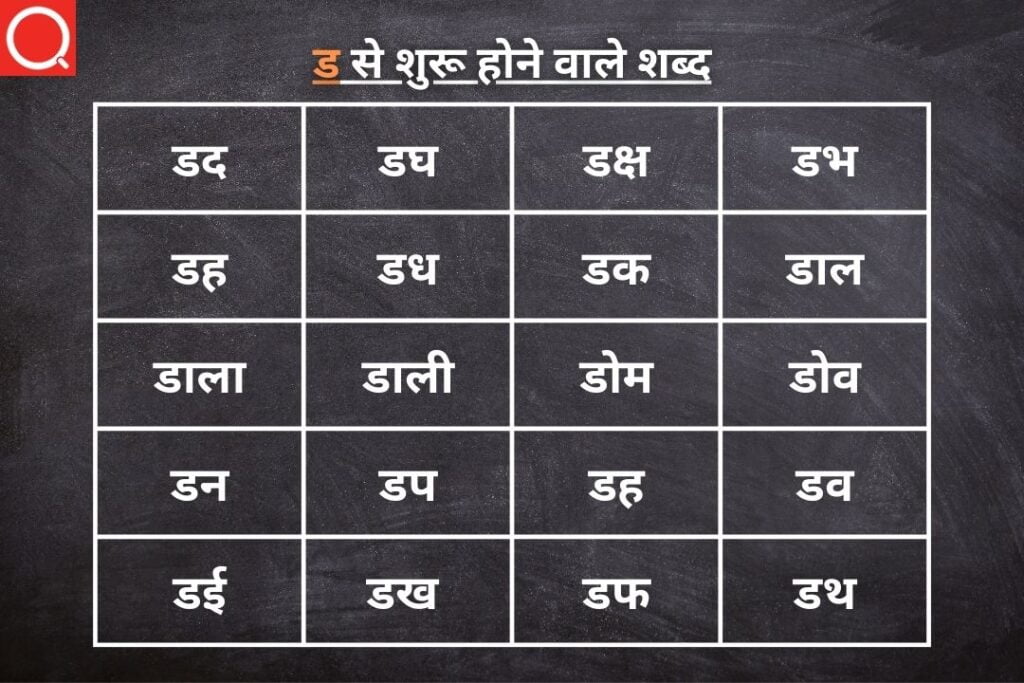 ड से शुरू होने वाले शब्द
डद डघ डक्ष डभ
डह डध डक डाल
डाला डाली डोम डोव
डन डप डह डव
डई डख डफ डथ